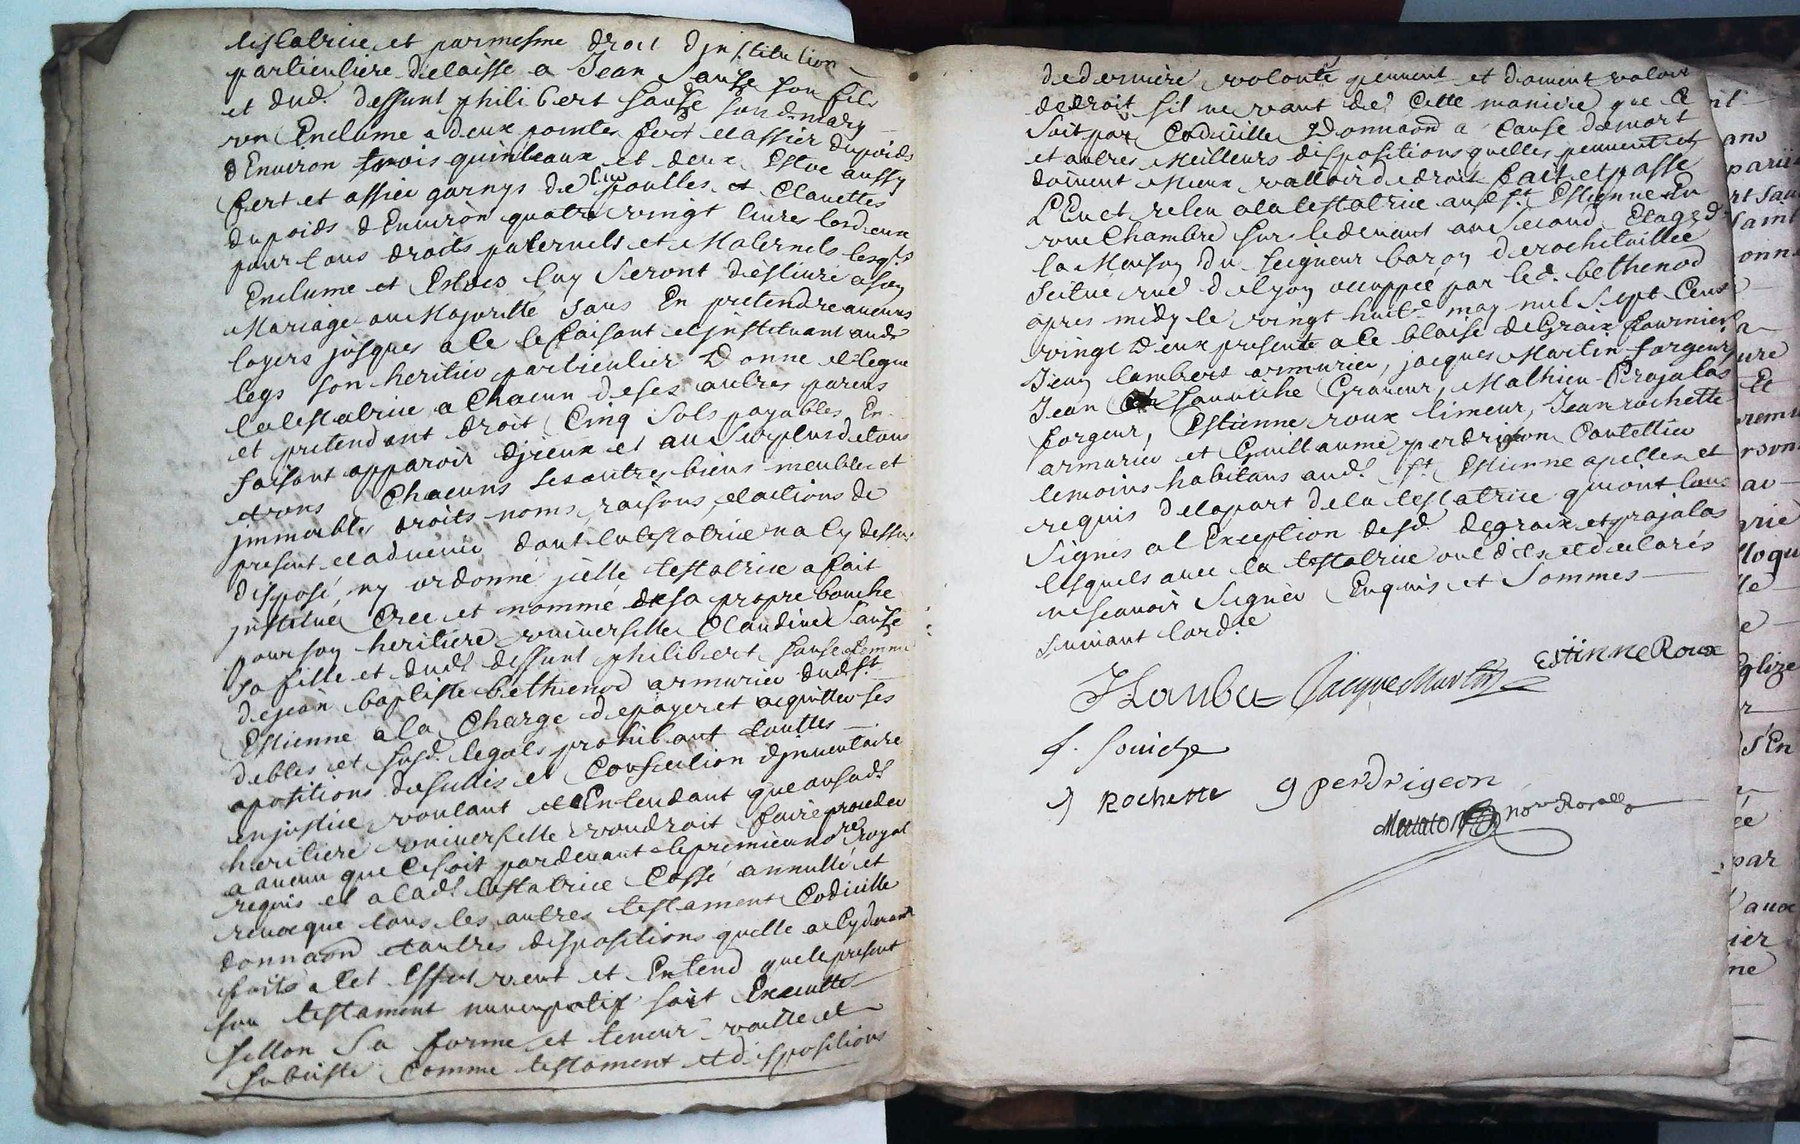 testatrice et par mesme droit d'institution
particuliere delaisse a Jean Sauze son fils
et dud. deffunt philibert Sauze son d. mary
un Enclume a deux pointes fert et assier du poids
d'Environ trois quinteaux et deux Estoc aussy
fert et assier garnys de leur poulles et Clauettes
du poids d'Environ quatre vingt liures lesd. deux
pour tous droits paternels et Maternels lesqls
Enclume et Estocs luy Seront desliuré a son
Mariage ou Majoritté sans En pretendre aucuns
loyers jusques a ce le faisant et jnstituant aud.
legs son heritier particulier Donne et legue
la testatrice a Chacun de ses autres parens
et pretendant droit Cinq Sols payables En
faisant apparoir d'jceux et au Surplus de tous
et vons Chacuns ses autres biens meubles et
jmmeubles droits noms, raisons, et actions de
present et aduenir dont la testatrice na Cy dessus
disposé, ny ordonné jcelle testatrice a fait
jnstitué Créé et nommé de sa propre bouche
pour son heritiere vniuerselle Claudine Sauze
sa fille et dud. deffunt philibert Sauze femme
de jean baptiste bethenod armurier dud. St.
Estienne a la Charge de payer et acquitter ses
debtes et susd. legats prohibant touttes
apositions de scellés et Confection d'jnuentaire
en justice voulant et Entendant que ou sad.
heritiere vniuerselle voudroit faire proceder
a aucun que Ce soit par deuant le premier no.re royal
requis et a lad. testatrice Cassé annullé et
reuoque tous les autres testament Codicille
donnaon et autres dispositions quelle a Cy deuant
faits a Cet Effet veut et Entend que le present
son testament nuncupatif soit Executté
sellon Sa forme et teneur vaille et
subciste Comme testament et dispositions
de derniere volonté peuuent et doiuent valoir
de droit sil ne vaut de Cette maniere que Ce
soit par Codicille Donnaon a Cause de mort
et autres Meilleurs dispositions quelles peuuent et
doiuent Mieux valloir de droit fait et passé
L'Eu et releu a la testatrice aud. St. Estienne En
une Chambre sur le deuant au Second Etage de
la Maison du seigneur baron de rochetaillée
scitue rue de lyon occuppée par led. bethenod
apres midy le vingt huit.e may mil Sept Cens
vingt Deux presents a ce blaise degraix fournier
Jean lambert armurier, jacques Martin forgeur
Jean Souuiche Graueur, Mathieu Prajalas
forgeur, Estienne roux limeur, Jean rochette
armurier et Guillaume perdrigeon Coutellier
temoins habitans aud. St. Estienne apelles et
requis de la part de la testatrice qui ont tous
Signés a l'Exception desd. degraix et prajalas
lesquels auec la testatrice ont dits et declarés
ne scauoir Signer Enquis et Sommés
suiuant lord.ce
Jacque Martin Estinne Roux
f. souiche
J Rochette g perdrigeon
no.re Royal